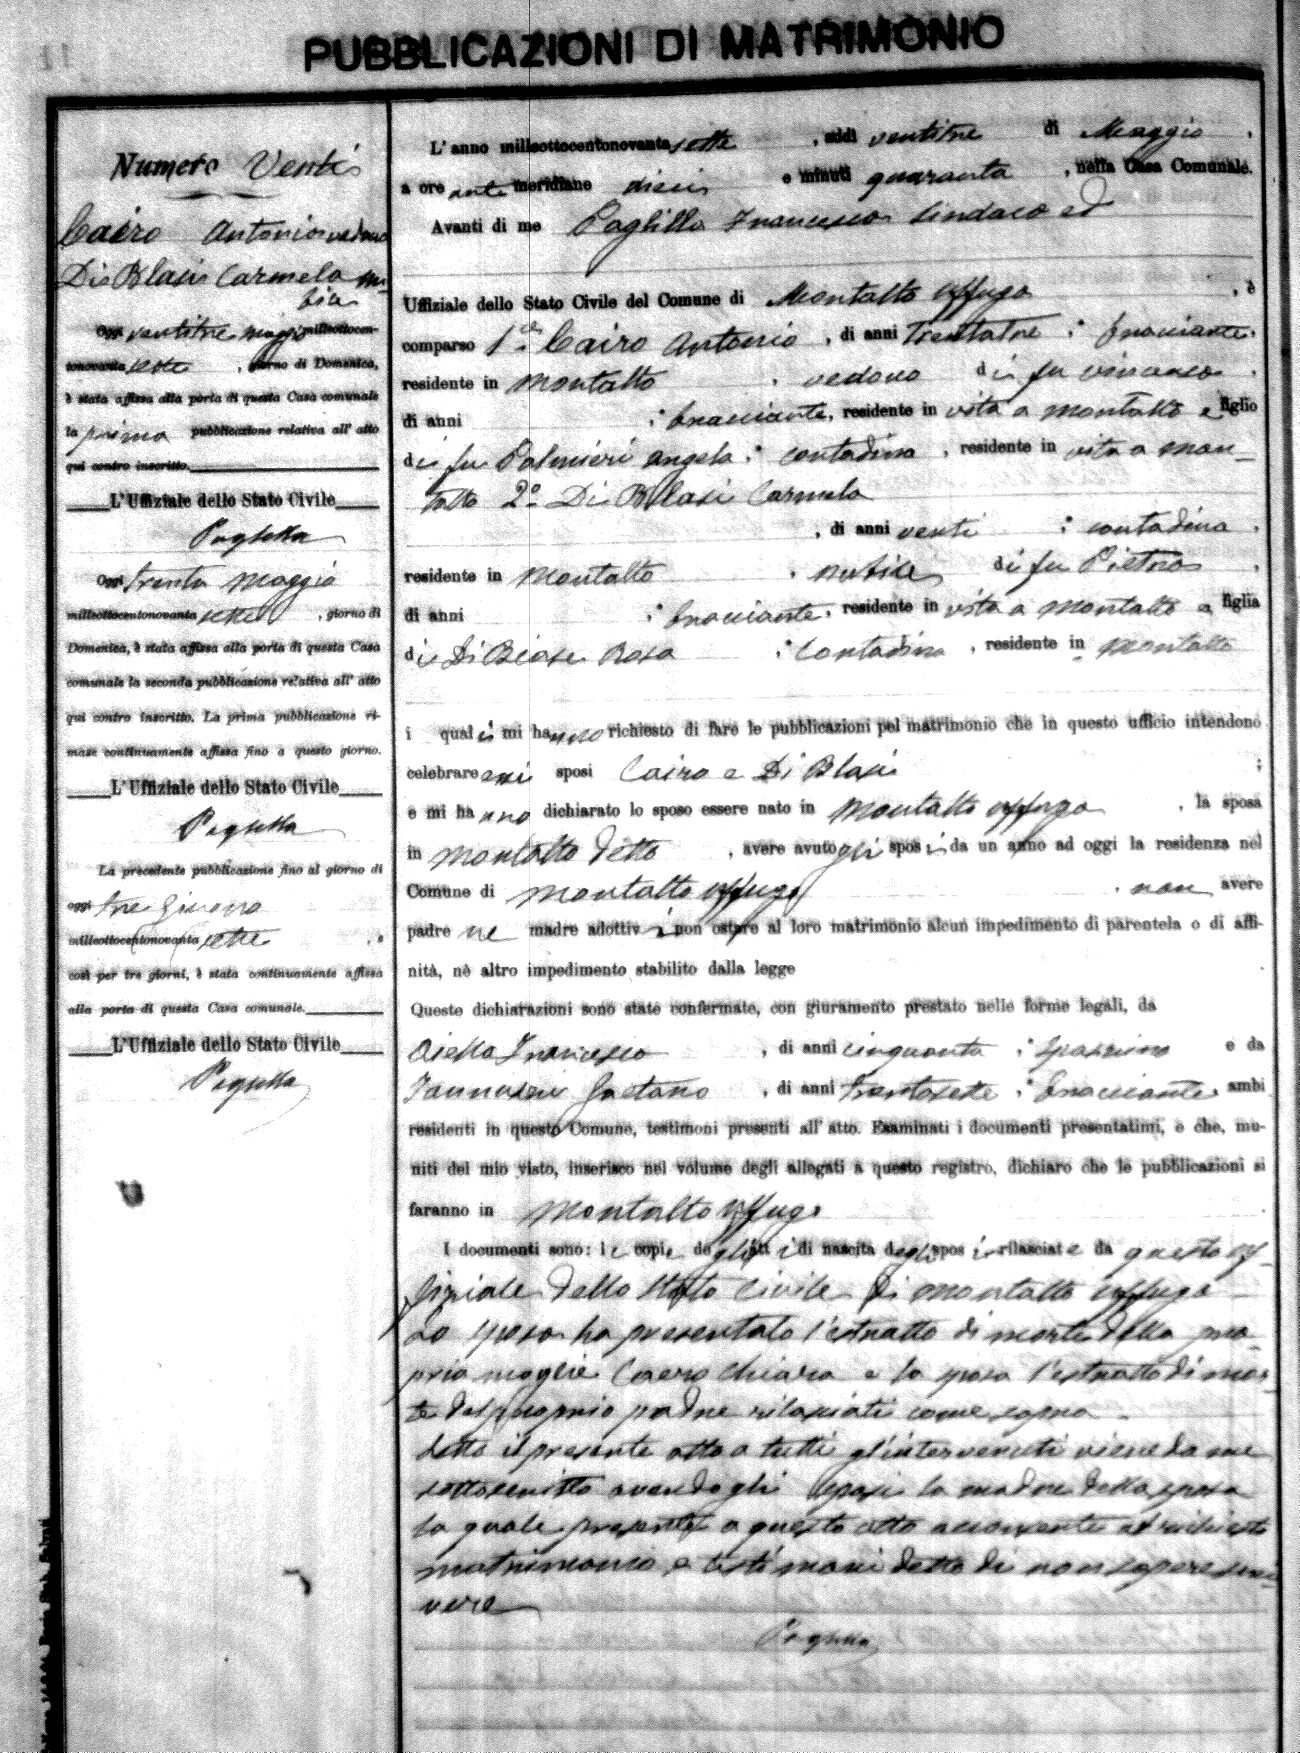 PUBBLICAZIONI DI MATRIMONIO
Numero Venti
Cairo Antonio vedovo
Di Blasi Carmela nu-
bile
Oggi ventitre maggio milleottocen-
tonovantasette, giorno di Domenica,
è stata affissa alla porta di questa Casa comunale
la prima pubblicazione relativa all' atto
qui contro inscritto.
L'Uffiziale dello Stato Civile
Oggi trenta maggio
milleottocentonovantasette, giorno di
Domenica, è stata affissa alla porta di questa Casa
comunale la seconda pubblicazione relativa all' atto
qui contro inscritto. La prima pubblicazione ri-
mase continuamente affissa fino a questo giorno.
L'Uffiziale dello Stato Civile
La precedente pubblicazione fino al giorno di
oggi tre Giugno
milleottocentonovantasette, e
così per tre giorni, è stata continuamente affissa
alla porta di questa Casa comunale.
L'Uffiziale dello Stato Civile
L' anno milleottocentonovantasette, addì ventitre di Maggio,
a ore antemeridiane dieci e minuti quaranta, nella Casa Comunale.
Avanti di me Francesco Sindaco ed
Uffiziale dello Stato Civile del Comune di Montalto Uffugo, è
comparso 1° Cairo Antonio, di anni trentatre; bracciante,
residente in Montalto, vedovo di fu Vincenzo,
di anni ; bracciante, residente in vita a Montalto e figlio
di fu Palmieri Angela; contadina, residente in vita a Mon-
talto 2° Di Blasi Carmela
, di anni venti ; contadina,
residente in Montalto, nubile, di fu Pietro,
di anni ; bracciante, residente in vita a Montalto e figlia
di Di Biase Rosa ; contadina, residente in Montalto
i quali mi hanno richiesto di fare le pubblicazioni pel matrimonio che in questo ufficio intendono
celebrare essi sposi Cairo e Di Blasi ;
e mi hanno dichiarato lo sposo essere nato in Montalto Uffugo, la sposa
in Montalto detto, avere avuto gli sposi da un anno ad oggi la residenza nel
Comune di Montalto Uffugo, non avere
padre ne madre adottivi non ostare al loro matrimonio alcun impedimento di parentela o di affi-
nità, nè altro impedimento stabilito dalla legge
Queste dichiarazioni sono state confermate, con giuramento prestato nelle forme legali, da
Aiello Francesco, di anni cinquanta; spazzino e da
Iannuzzi Gaetano, di anni trentasette; bracciante ambi
residenti in questo Comune, testimoni presenti all' atto. Esaminati i documenti presentatimi, e che, mu-
niti del mio visto, inserisco nel volume degli allegati a questo registro, dichiaro che le pubblicazioni si
faranno in Montalto Uffugo
I documenti sono: le copie degli atti di nascita degli sposi rilasciate da questo uf-
fiziale dello Stato Civile di Montalto Uffugo
Lo sposo ha presentato l'estratto di morte della pro-
pria moglie Chiara e la sposa l'estratto di mor-
te del proprio padre rilasciati come sopra.
Letto il presente atto a tutti gl'intervenuti viene da me
sottoscritto avendo gli sposi la madre della sposa
la quale presente a questo atto acconsente al richiesto
matrimonio, e testimoni detto di non sapere scri-
vere